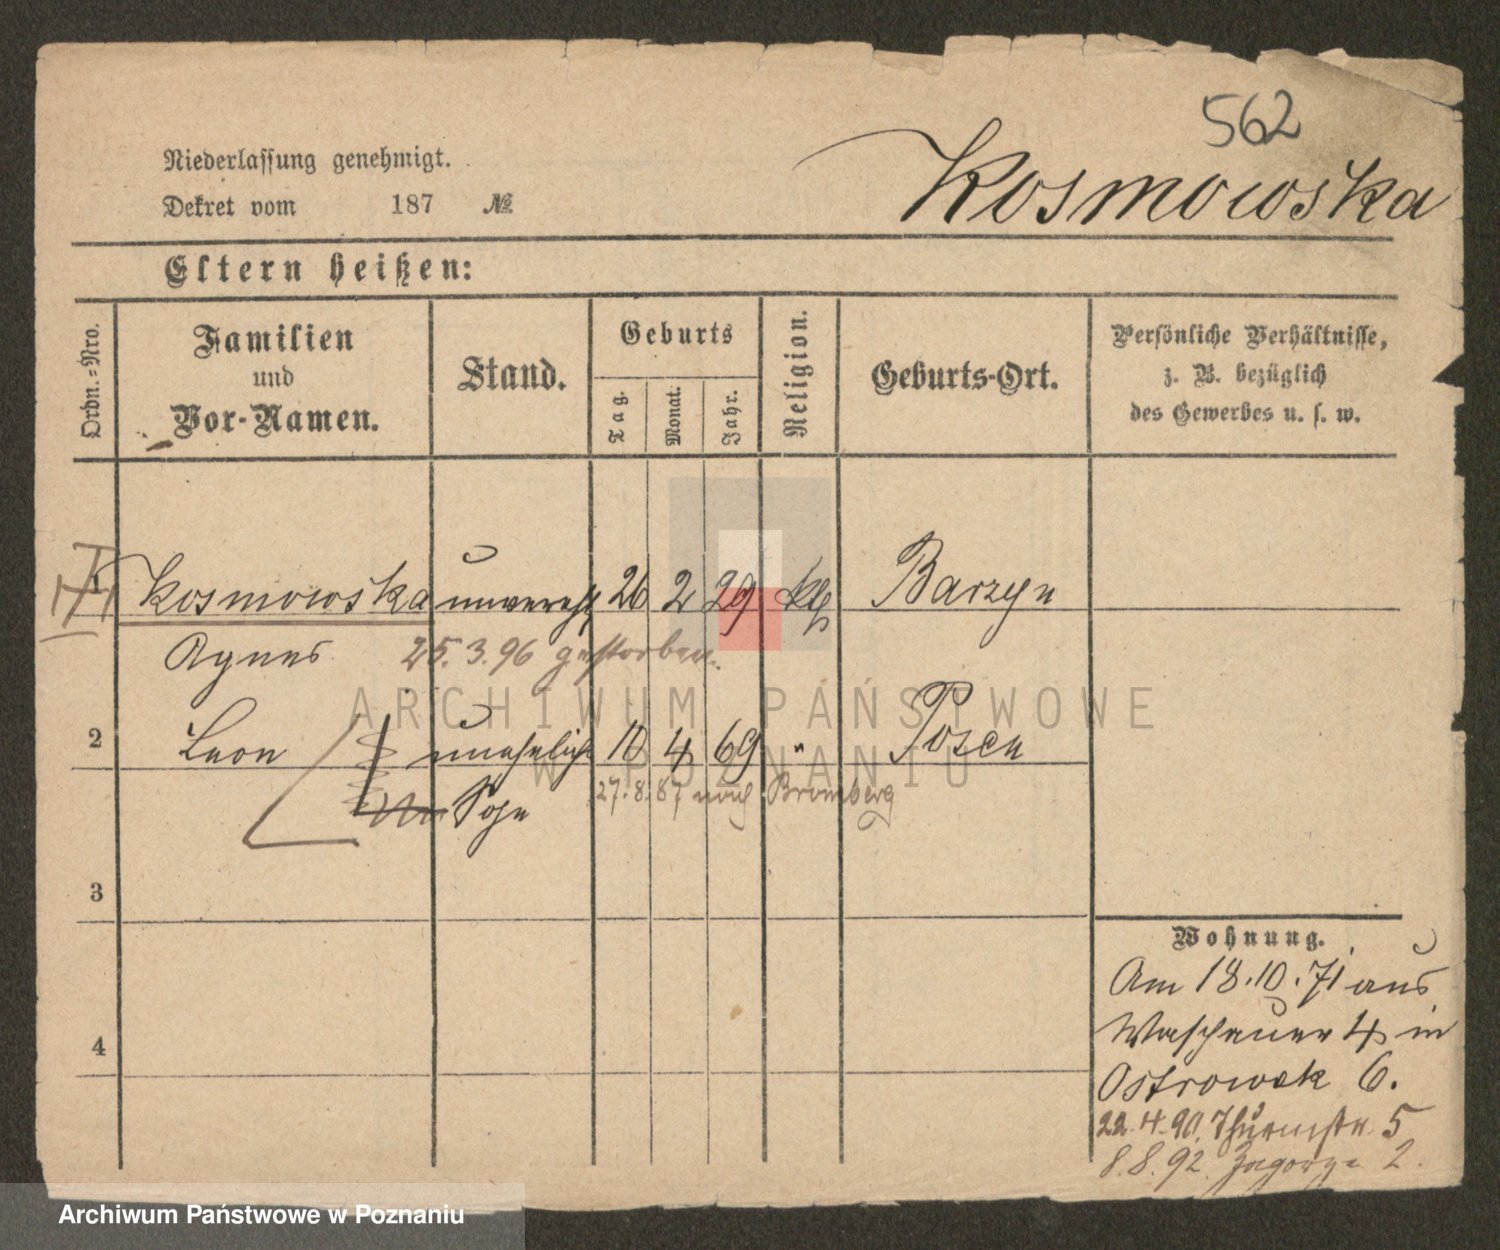 562
Niederlassung genehmigt.
Dekret vom 187 №
Kosmowska
Eltern heißen:
Ordn.-Nro.
Familien
und
Vor-Namen.
Stand.
Geburts
Tag.
Monat.
Jahr.
Religion.
Geburts-Ort.
Persönliche Verhältnisse,
z. B. bezüglich
des Gewerbes u. s. w.
1 Kosmowska unvereh 26 2 29 kth Barzyn
Agnes 25.3.96 gestorben.
2 Leon unehelich 10 4 69 " Posen
Sohn 27.8.87 nach Bromberg
3
4
Wohnung.
Am 18.10.71 aus
Waschauer 4 in
Ostrowek 6.
22.4.90. Thurmstr. 5
8.8.92. Zagorze 2.
ARCHIWUM PAŃSTWOWE
W POZNANIU
Archiwum Państwowe w Poznaniu